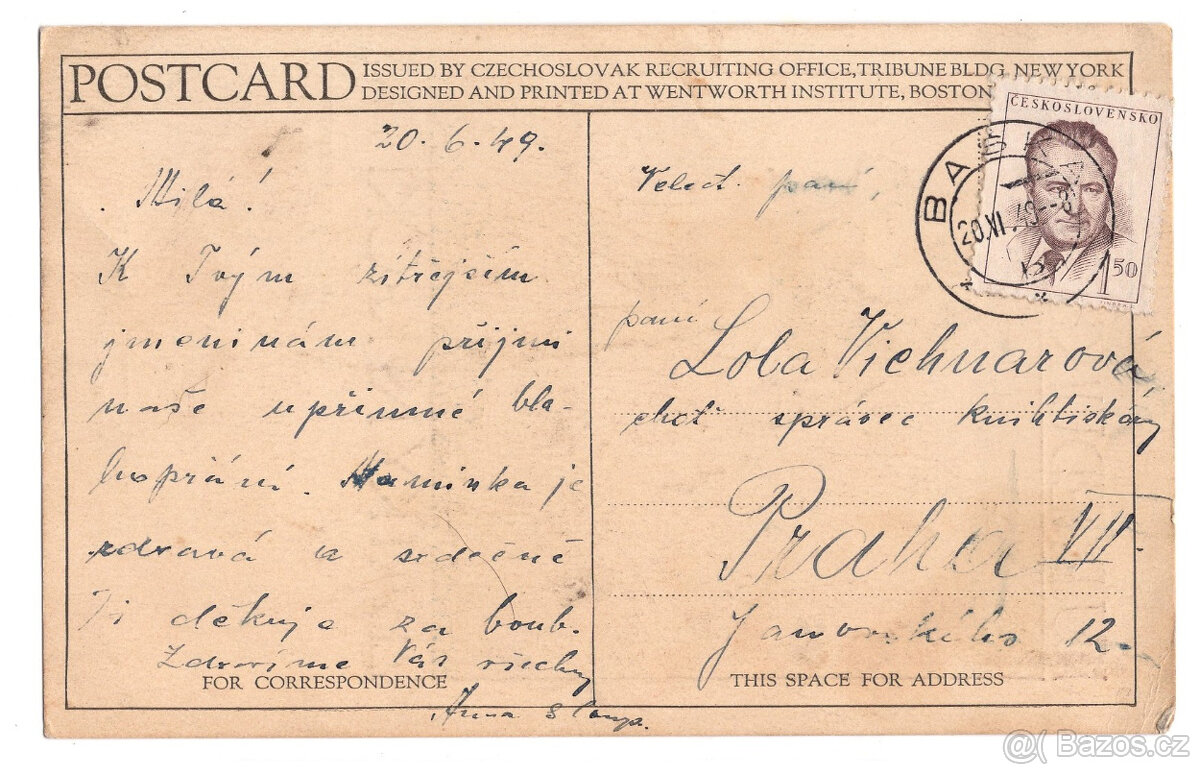 POSTCARD
ISSUED BY CZECHOSLOVAK RECRUITING OFFICE, TRIBUNE BLDG. NEW YORK
DESIGNED AND PRINTED AT WENTWORTH INSTITUTE, BOSTON
20. 6. 49.
Milá!
K Tvým zítřejším
jmeninám přijmi
naše upřímné bla-
hopřání. Maminka je
zdravá a srdečně
Ti děkuje za boub.
Zdravíme Vás všechny
Anna
FOR CORRESPONDENCE
ČESKOSLOVENSKO
1 50
BA
20.XI.49--8
Velect. paní,
paní
Lola Vichnarová,
choť správce knihtiskárny
Praha VII.
Janovského 12
THIS SPACE FOR ADDRESS
@( Bazos.cz